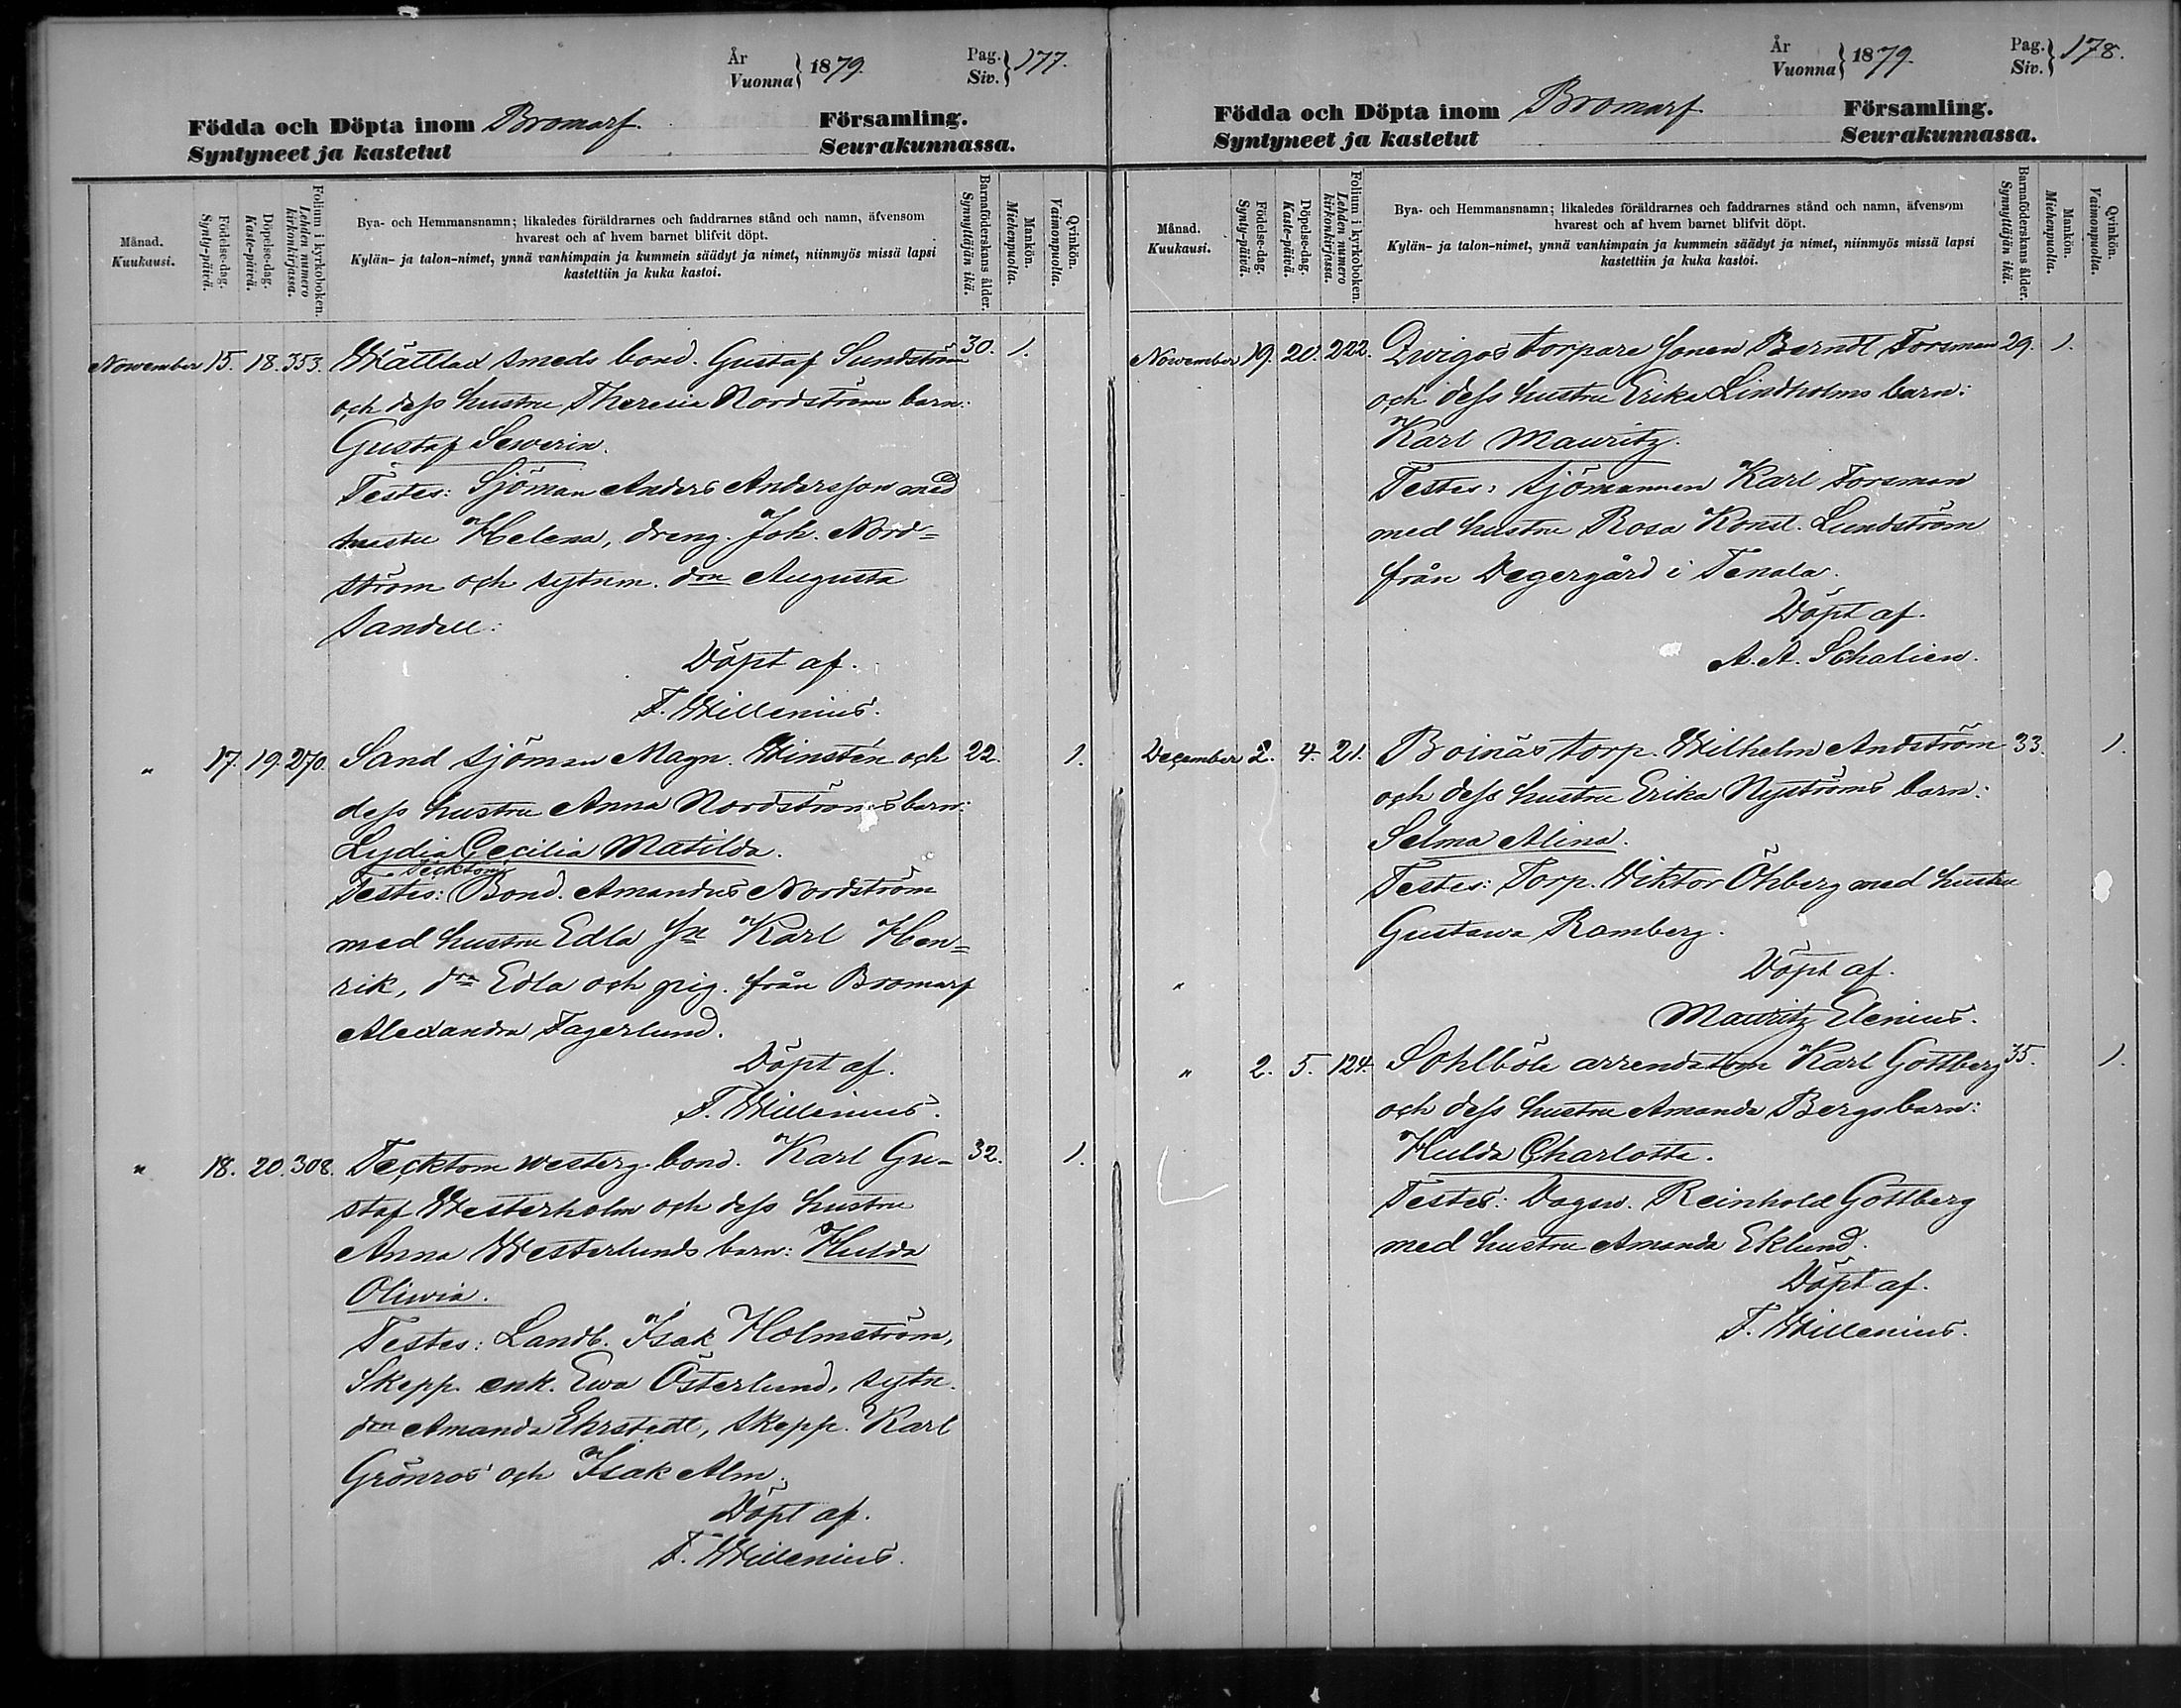 År
Vuonna } 1879.
Pag.
Siv. } 177.
Födda och Döpta inom Bromarf. Församling.
Syntyneet ja kastetut Seurakunnassa.
Månad.
Kuukausi.
Födelse-dag.
Synty-päivä.
Döpelse-dag.
Kaste-päivä.
Folium i kyrkoboken.
Lehden numero kirkonkirjassa.
Bya- och Hemmansnamn; likaledes föräldrarnes och faddrarnes stånd och namn, äfvensom
hvarest och af hvem barnet blifvit döpt.
Kylän- ja talon-nimet, ynnä vanhimpain ja kummein säädyt ja nimet, niinmyös missä lapsi
kastettiin ja kuka kastoi.
Barnaföderskans ålder.
Synnyttäjän ikä.
Mankön.
Miehenpuolta.
Qvinkön.
Vaimonpuolta.
November 15. 18. 353. Wättlax smeds bond. Gustaf Sundström 30. 1.
och dess hustru Theresia Nordströms barn:
Gustaf Sewerin.
Testes: Sjöman Anders Andersson med
hustru Helena, dreng. Joh. Nord=
ström och sytnm. dra Augusta
Sandell:
Döpt af.
F. Willenius.
" 17. 19. 270. Sand sjöman Magn. Winstén och 22. 1.
dess hustru Anna Nordströms barn:
Lydia Cecilia Matilda.
Täcktom
Testes: Bond. Amandus Nordström
med hustru Edla sn Karl Hen=
rik, dra Edla och pig. från Bromarf
Alexandra Fagerlund.
Döpt af.
F. Willenius.
" 18. 20. 308. Täcktom westerg. bond. Karl Gu- 32. 1.
staf Westerholm och dess hustru
Anna Westerlunds barn: Hulda
Oliwia.
Testes: Landb. Isak Holmström,
Skepp. enk. Ewa Österlund, sytn.
dra Amanda Ehrstedt, skepp. Karl
Grönros och Isak Alm.
Döpt af.
F. Willenius.
År
Vuonna } 1879.
Pag.
Siv. } 178.
Födda och Döpta inom Bromarf Församling.
Syntyneet ja kastetut Seurakunnassa.
Månad.
Kuukausi.
Födelse-dag.
Synty-päivä.
Döpelse-dag.
Kaste-päivä.
Folium i kyrkoboken.
Lehden numero kirkonkirjassa.
Bya- och Hemmansnamn; likaledes föräldrarnes och faddrarnes stånd och namn, äfvensom
hvarest och af hvem barnet blifvit döpt.
Kylän- ja talon-nimet, ynnä vanhimpain ja kummein säädyt ja nimet, niinmyös missä lapsi
kastettiin ja kuka kastoi.
Barnaföderskans ålder.
Synnyttäjän ikä.
Mankön.
Miehenpuolta.
Qvinkön.
Vaimonpuolta.
November 19. 20. 222. torpare sonen Berndt Forsman 29. 1.
och dess hustru Erika Lindholms barn:
Karl Mauritz.
Testes: sjömannen Karl Forsman
med hustru Rosa Konst. Lundström
från Degergård i Tenala.
Döpt af.
A. A. Schalien.
December 2. 4. 21. Boinäs torp. Wilhelm Andström 33. 1.
och dess hustru Erika Nyströms barn:
Selma Alina.
Testes: Torp. Wiktor Öhberg med hustru
Gustawa Ramberg.
Döpt af.
"
Mauritz Elenius.
" 2. 5. 124. Sohlböle arrendatorn Karl Gottberg 35. 1.
och dess hustru Amanda Bergs barn:
Hulda Charlotta.
Testes: Dagsw. Reinhold Gottberg
med hustru Amanda Eklund.
Döpt af.
F. Willenius.